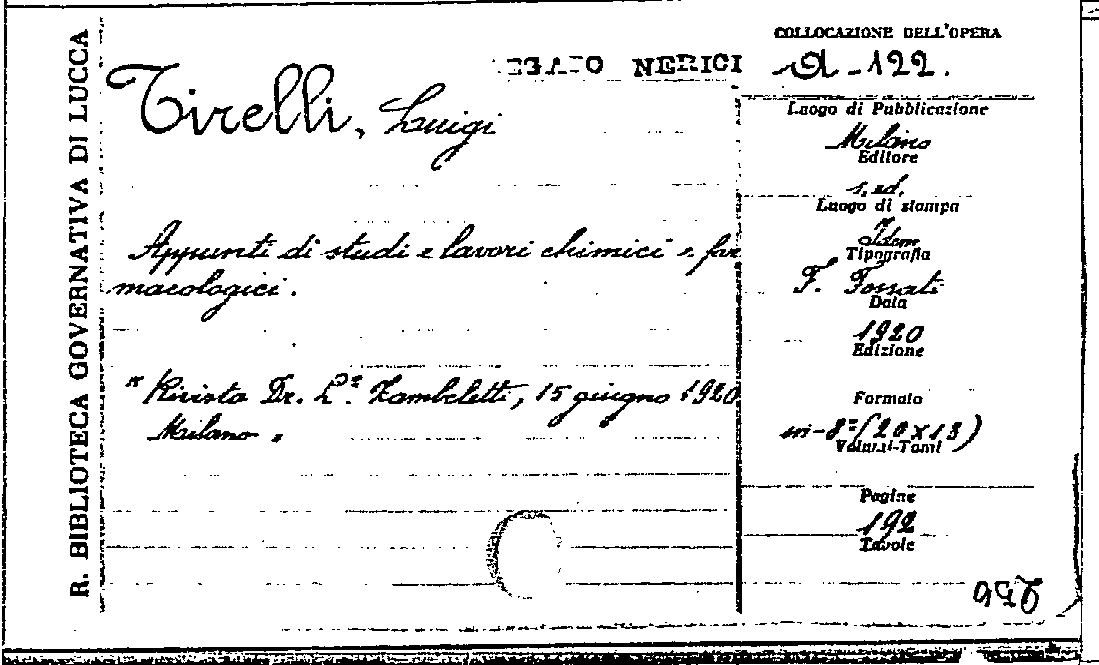 R. BIBLIOTECA GOVERNATIVA DI LUCCA
NERICI
COLLOCAZIONE DELL'OPERA
A - 122.
Tirelli, Luigi
Luogo di Pubblicazione
Milano
Editore
s. ed.
Luogo di stampa
Idem
Tipografia
F. Fossati
Data
1920
Edizione
Formato
in-8º (20 x 13)
Volumi-Tomi
Pagine
192
Tavole
Appunti di studi e lavori chimici e far
macologici.
"Rivista Dr. L. Zambeletti, 15 giugno 1920
Milano"